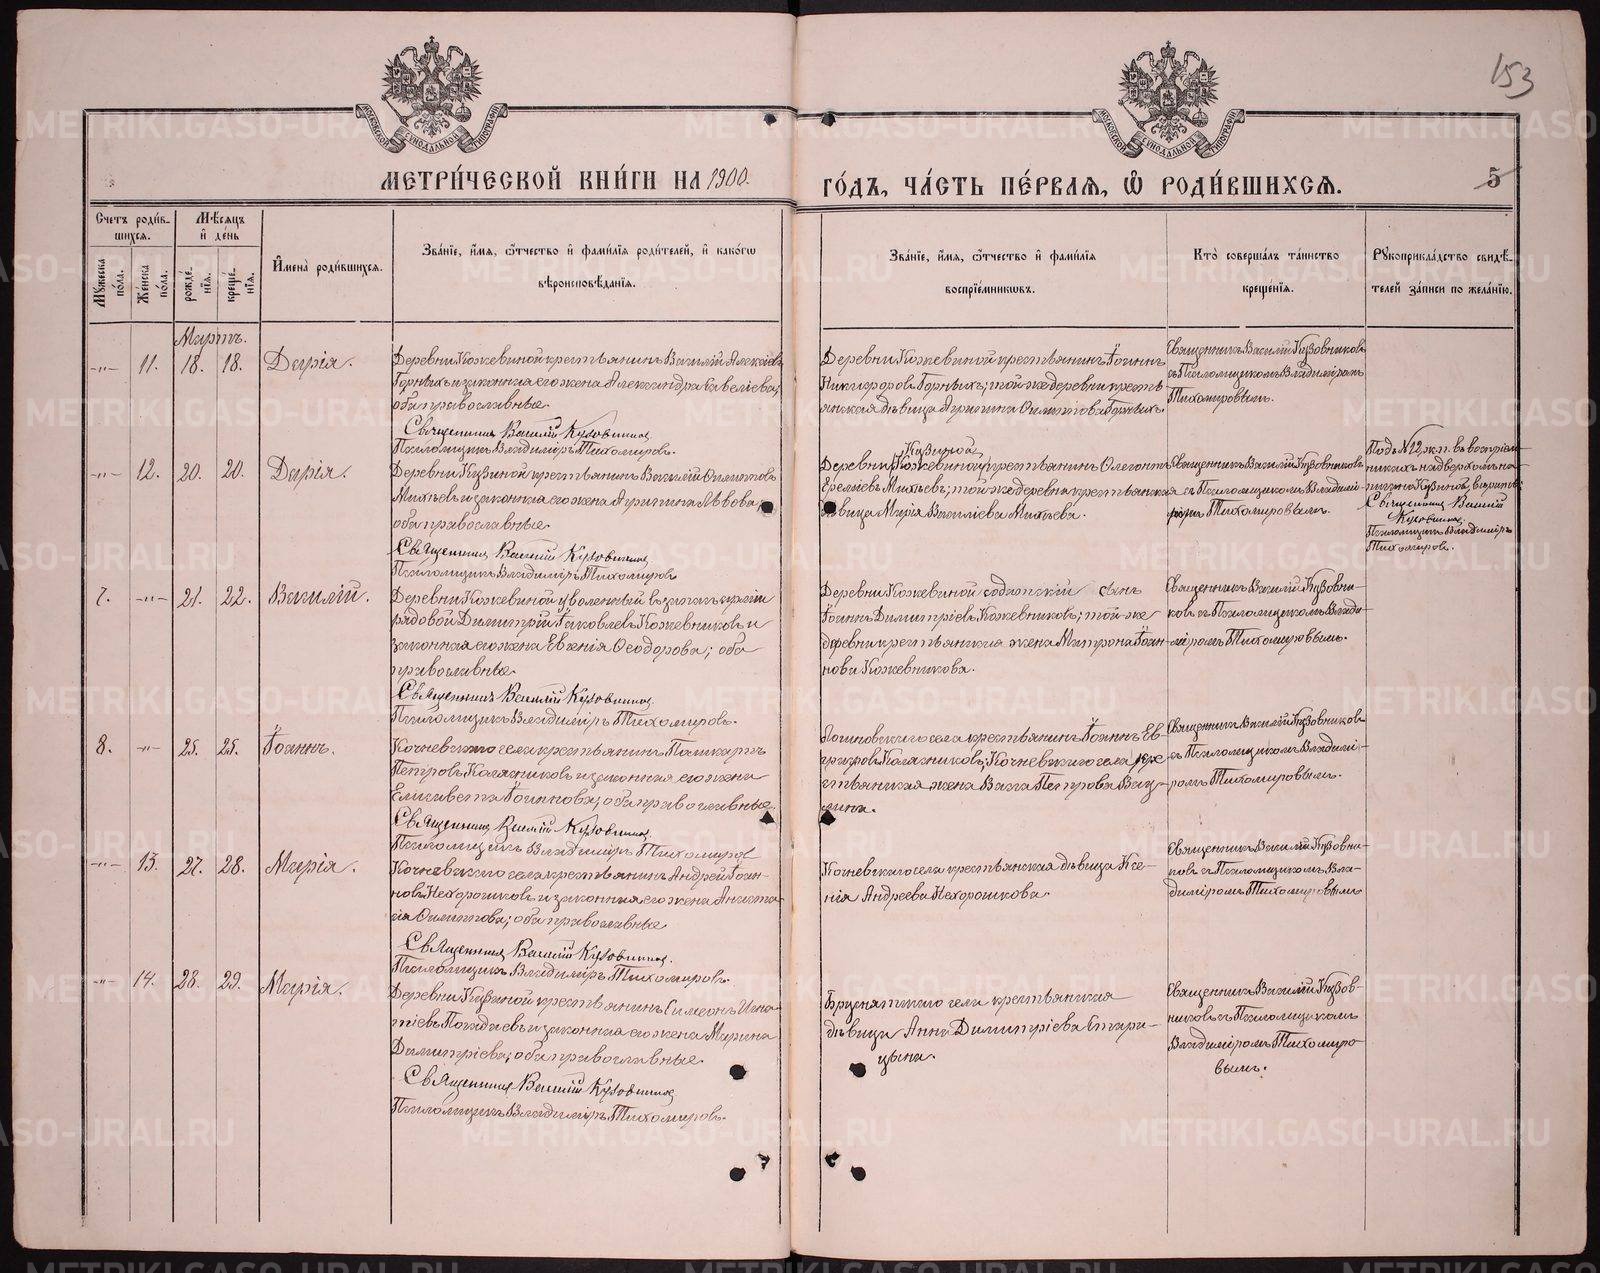 153
МОСКОВСКОЙ СѴНОДАЛЬНОЙ ТИПОГРАФІИ
МОСКОВСКОЙ СѴНОДАЛЬНОЙ ТИПОГРАФІИ
МЕТРИ́ЧЕСКОЙ КНИ́ГИ НА 1900.
ГО́ДЪ, ЧА́СТЬ ПЕ́РВАѦ, Ѽ РОДИ́ВШИХСѦ.
5
Счетъ роди́в-
шихсѧ.
Мѣ́сѧцъ
и҆ де́нь
Мꙋ́жеска по́ла.
Же́нска по́ла.
рожде́нїѧ.
креще́нїѧ.
И҆мена̀ роди́вшихсѧ.
Зва́нїе, и҆́мѧ, ѻ҆́тчество и҆ фами́лїѧ роди́телей, и҆ како́гѡ
вѣроисповѣ́данїѧ.
Зва́нїе, и҆́мѧ, ѻ҆́тчество и҆ фами́лїѧ
воспрїе́мникѡвъ.
Кто̀ соверша́лъ та́инство
креще́нїѧ.
Рꙋкоприкла́дство свидѣ́-
телей за́писи по жела́нїю.
Мартъ.
-"- 11. 18. 18. Дарія.
Деревни Кожевиной крестьянинъ Василій Алексѣевъ
Горныхъ и законная его жена Александра Савеліева;
оба православные.
Священникъ Василій Кузовниковъ
Псаломщикъ Владиміръ Тихомировъ.
Деревни Кожевиной крестьянинъ Іоаннъ
Никифоровъ Горныхъ; той же деревни кресть-
янская дѣвица Агрипина Филиппова Горныхъ.
Священникъ Василій Кузовниковъ
съ Псаломщикомъ Владиміромъ
Тихомировымъ.
-"- 12. 20. 20. Дарія.
Деревни Кузиной крестьянинъ Василій Филипповъ
Михѣевъ и законная его жена Агрипина Львова;
оба православные.
Священникъ Василій Кузовниковъ
Псаломщикъ Владиміръ Тихомировъ
Кузиной
Деревни Кожевиной крестьянинъ
Михѣевъ; той же деревни крестьянская
дѣвица Марія Василіева Михѣева.
Священникъ Василій Кузовниковъ
съ Псаломщикомъ Владимі-
ромъ Тихомировымъ.
Подъ № 12 ж.п. въ воспріем-
никахъ надверхомъ на-
писано Кузиной вѣрить;
Священникъ Василій
Кузовниковъ.
Псаломщикъ Владиміръ
Тихомировъ.
7. -"- 21. 22. Василій.
Деревни Кожевиной уволенный въ запасъ арміи
рядовой Димитрій Іаковлевъ Кожевниковъ и
законная его жена Евгенія Ѳеодорова; оба
православные.
Священникъ Василій Кузовниковъ
Псаломщикъ Владиміръ Тихомировъ.
Деревни Кожевиной солдатскій сынъ
Іоаннъ Димитріевъ Кожевниковъ; той же
деревни крестьянская жена Матрона Іоан-
нова Кожевникова.
Священникъ Василій Кузовни-
ковъ съ Псаломщикомъ Влади-
міромъ Тихомировымъ.
8. -"- 25. 25. Іоаннъ.
Кочневскаго села крестьянинъ
Петровъ Колясниковъ и законная его жена
Елисавета Іоаннова; оба православные.
Священникъ Василій Кузовниковъ.
Псаломщикъ Владиміръ Тихомировъ
Логиновскаго села крестьянинъ Іоаннъ Ев-
графовъ Колясниковъ; Кочневскаго села кре-
стьянская жена Васса Петрова
Священникъ Василій Кузовниковъ
съ Псаломщикомъ Владимі-
ромъ Тихомировымъ.
-"- 13. 27. 28. Марія.
Кочневскаго села крестьянинъ Андрей Іоан-
новъ Нехорошковъ и законная его жена Анаста-
сія Филиппова; оба православные.
Священникъ Василій Кузовниковъ.
Псаломщикъ Владиміръ Тихомировъ.
Кочневскаго села крестьянская дѣвица Ксе-
нія Андреева Нехорошкова.
Священникъ Василій Кузовни-
ковъ съ Псаломщикомъ Вла-
диміромъ Тихомировымъ
-"- 14. 28. 29. Марія.
Деревни Кузиной крестьянинъ Симеонъ Игна-
тіевъ и законная его жена Марина
Димитріева; оба православные.
Священникъ Василій Кузовниковъ
Псаломщикъ Владиміръ Тихомировъ.
Бруснятскаго села крестьянская
дѣвица Анна Димитріева Стари-
цына.
Священникъ Василій Кузов-
никовъ съ Псаломщикомъ
Владиміромъ Тихомиро-
вымъ.
METRIKI.GASO-URAL.RU